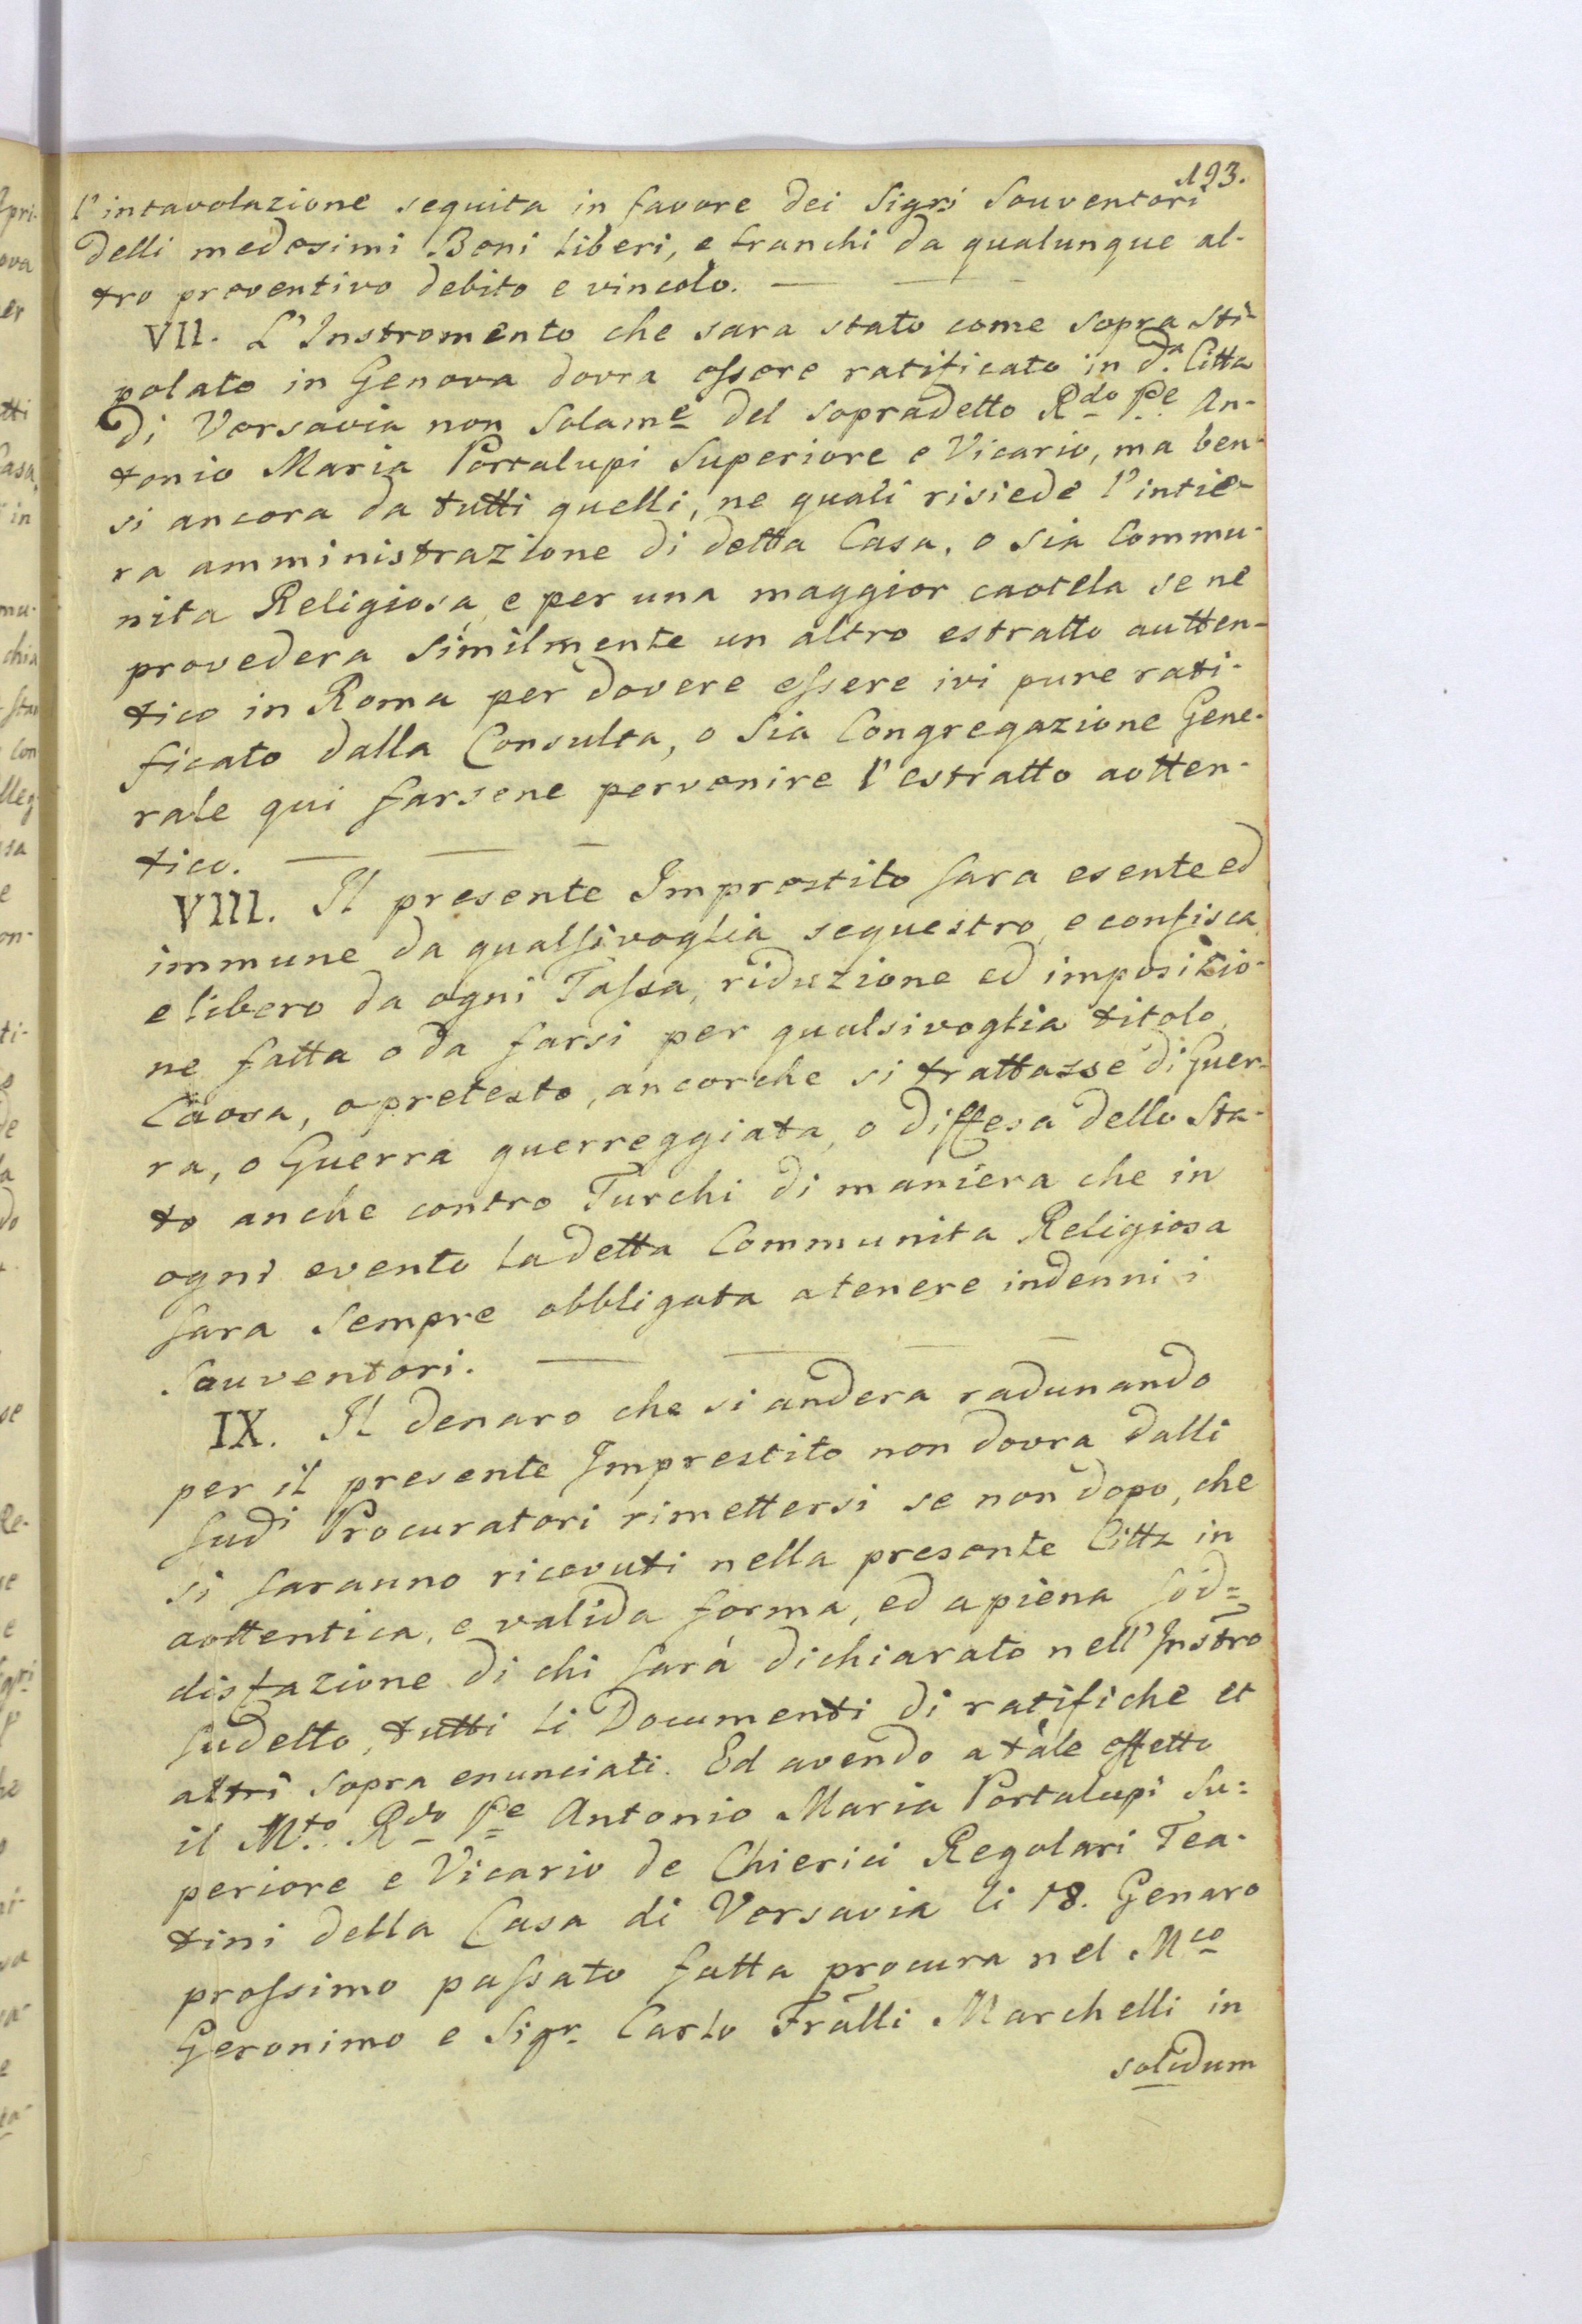 123.
l'intavolazione seguita in favore dei Sigri Souventori
delli medesimi Beni liberi, e franchi da qualunque al-
tro preventivo debito e vincolo.
VII. L'Instromento che sara stato come sopra sti-
polato in Genova dovra essere ratificato in d.a Citta
di Varsavia non solam.e del sopradetto R.do P.e An-
tonio Maria Portalupi Superiore e Vicario, ma ben-
si ancora da tutti quelli, ne quali risiede l'intie-
ra amministrazione di detta Casa, o sia Commu-
nita Religiosa, e per una maggior cautela se ne
provedera similmente un altro estratto autten-
tico in Roma per dovere essere ivi pure rati-
ficato dalla Consulta, o sia Congregazione Gene-
rale qui farsene pervenire l'estratto autten-
tico.
VIII. Il presente Imprestito sara esente ed
immune da qualsivoglia sequestro, e confisca,
e libero da ogni Tassa, riduzione ed impositio-
ne fatta o da farsi per qualsivoglia titolo,
Causa, o pretesto, ancorche si trattasse di Guer-
ra, o Guerra guerreggiata, o diffesa dello Sta-
to anche contro Turchi di maniera che in
ogni evento la detta Communita Religiosa
sara sempre obbligata a tenere indenni i
Sauventori.
IX. Il denaro che si andera radunando
per il presente Imprestito non dovra dalli
sud.i Procuratori rimettersi se non dopo, che
si saranno ricevuti nella presente Citta in
auttentica, e valida forma, ed a piena sod=
disfazione di chi sarà dichiarato nell'Instro
sudetto, tutti li Documenti di ratifiche et
altri sopra enunciati. Ed avendo a tale effetto
il M.to R.do P.e Antonio Maria Portalupi Su=
periore e Vicario de Chierici Regolari Tea-
tini della Casa di Varsavia li 18. Genaro
prossimo passato fatta procura nel M.co
Geronimo e Sigr. Carlo Fralli Marchelli in
solidum